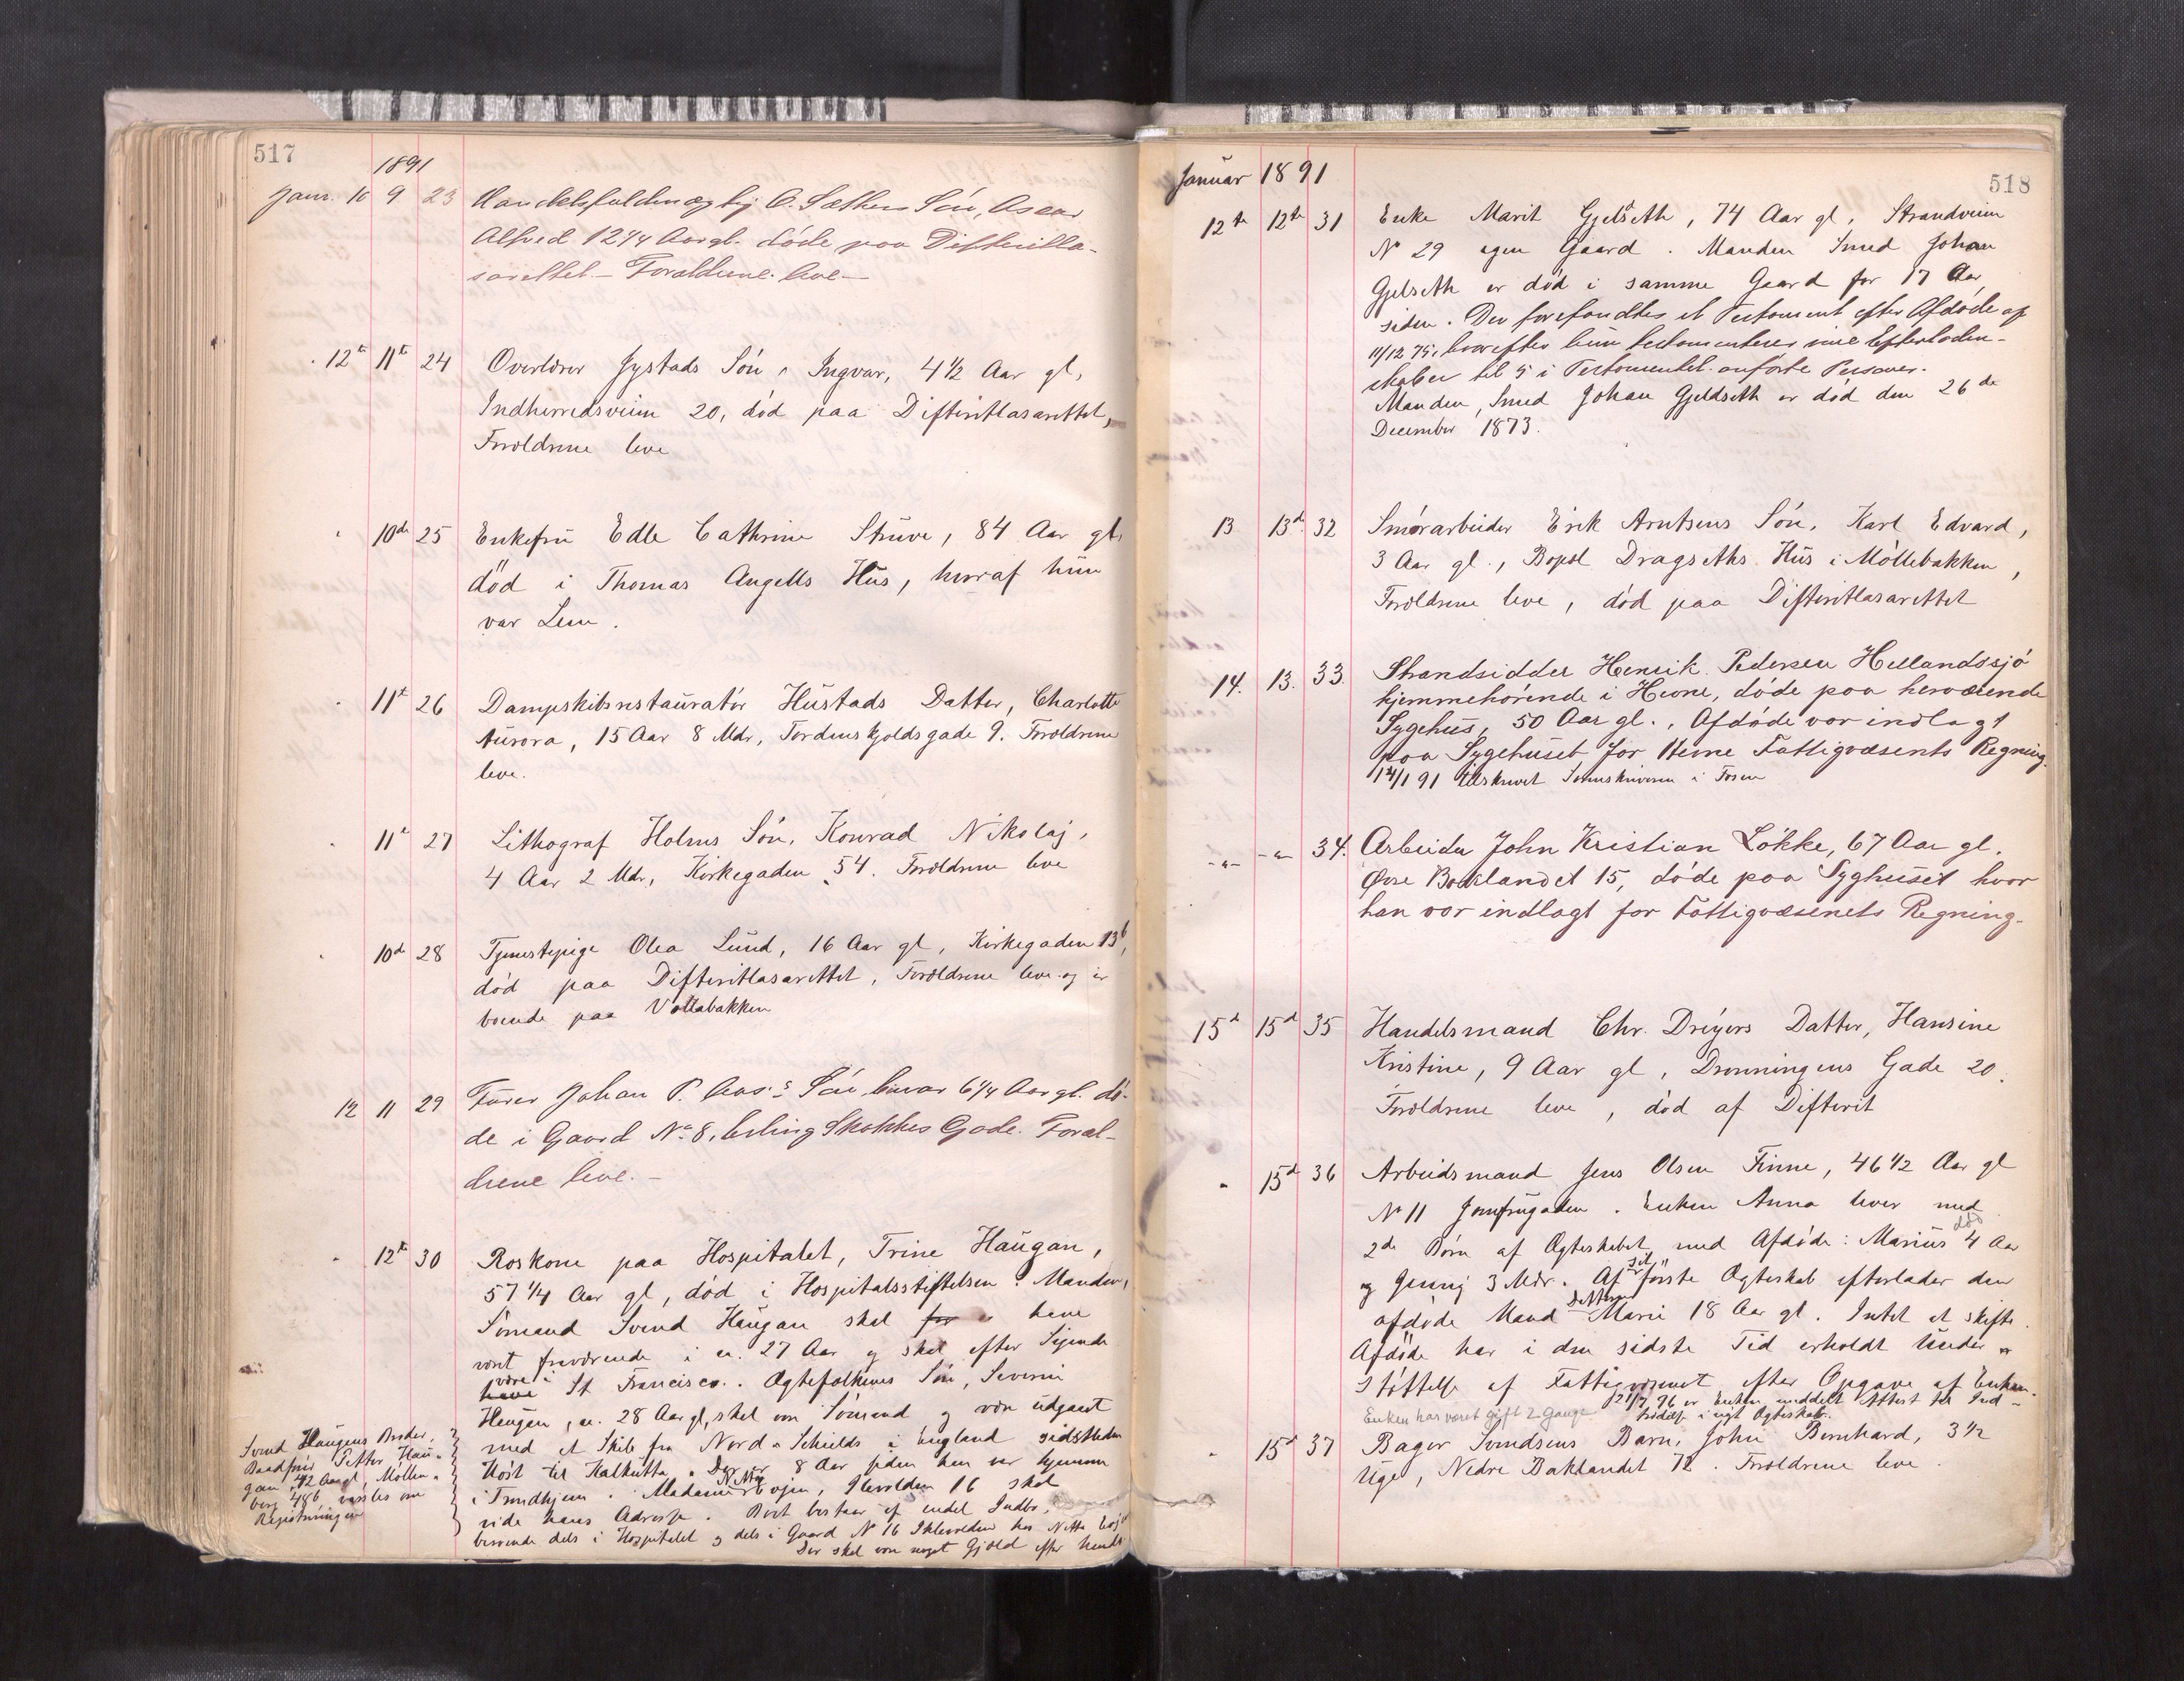 517
1891
Janr. 10 9 23 Handelsfuldmægtig O. Sæthers Sön, Oscar
Alfred 12 1/4 Aar gl. döde paa Difteritla-
sarettet. - Forældrene leve -
12te 11te 24 Overlærer Gystads Sön, Ingvar, 4 1/2 Aar gl,
Indherredsveien 20, död paa Difteritlasarettet,
Forældrene leve
10de 25 Enkefru Edle Cathrine Strüve, 84 Aar gl,
död i Thomas Angells Hus, hvoraf hun
var Lem.
11te 26 Dampskibsrestauratör Hustads Datter, Charlotte
Aurora, 15 Aar 8 Mdr, Tordenskjoldsgade 9. Forældrene
leve.
11te 27 Lithograf Holms Sön, Konrad Nikolaj,
4 Aar 2 Mdr, Kirkegaden 54. Forældrene leve
10de 28 Tjenestepige Olea Lund, 16 Aar gl, Kirkegaden 13b,
död paa Difteritlasarettet, Forældrene leve og er
boende paa Vollabakken
12 11 29 Furer Johan P. Aas's Sön, 6 1/4 Aar gl. dö-
de i Gaard No 8, Erling Skakkes Gade. Foræl-
drene leve. -
12te 30 Roskone paa Hospitalet, Trine Haugan,
57 1/4 Aar gl, död i Hospitalsstiftelsen. Manden,
Sömand Svend Haugan skal for have
været fraværende i ca. 27 Aar og skal efter Sigende
være i
have St Francisco. Ægtefolkenes Sön, Severin
Haugan, ca. 28 Aar gl, skal være Sömand og være udgaaet
med et Skib fra Nord-Schields i England sidstleden
Höst til Kalkutta. Det er 8 Aar siden han var hjemme
i Trondhjem. Madame Netta, Ilevolden 16 skal
vide hans Adresse. Boet bestaar af endel Indbo,
beroende dels i Hospitalet og dels i Gaard No 16 Ilevolden hos Netta
Der skal være noget Gjæld efter hende
Svend Haugens Broder,
Petter Hau-
gan, 42 Aar gl, Möllen-
berg 48b, varsles om
Registreringen
Januar 1891
518
12te 12te 31 Enke Marit Gjeldseth, 74 Aar gl, Strandveien
No 29 egen Gaard. Manden Smed Johan
Gjelseth er död i samme Gaard for 17 Aar
siden. Der forefandtes et Testament efter Afdöde af
11/12 75, hvorefter hun testamenterer sine Efterladen-
skaber til 5 i Testamentet anförte Personer.
Manden, Smed Johan Gjeldseth er död den 26de
December 1873.
13 13de 32 Smörarbeider Erik Arntsens Sön, Karl Edvard,
3 Aar gl., Bopæl Dragseths Hus i Möllebakken,
Forældrene leve, död paa Difteritlasarettet
14. 13. 33. Strandsidder Henrik Pedersen Hellandssjö
hjemmehörende i Hevne, döde paa herværende
Sygehus, 50 Aar gl., Afdöde var indlagt
paa Sygehuset for Hevne Fattigvæsents Regning.
14/1 91 tilskrevet Sorenskriveren i Fosen
-"- -"- 34. Arbeider John Kristian Lökke, 67 Aar gl.
Övre Baklandet 15, döde paa Syghuset hvor
han var indlagt for Fattigvæsenets Regning.
15de 15de 35 Handelsmand Chr. Dreyers Datter, Hansine
Kristine, 9 Aar gl, Dronningens Gade 20.
Forældrene leve, död af Difterit
" 15de 36 Arbeidsmand Jens Olsen Finne, 46 1/2 Aar gl
No 11 Jomfrugaden. Enken Anna lever med
död
2de Börn af Ægteskabet med Afdöde: Marius 4 Aar
og Jenny 3 Mdr. Af sit förste Ægteskab efterlader den
afdöde Mand Datteren Marie 18 Aar gl. Intet at skifte.
Afdöde har i den sidste Tid erholdt Under-
stöttelse af Fattigvæsenet efter Opgave af Enken.
Enken har været gift 2 Gange 21/7 96 er Enken meddelt Attest til Ind-
trædelse i nyt Ægteskab.
" 15de 37 Bager Svendsens Barn, John Bernhard, 3 1/2
Uge, Nedre Baklandet 72. Forældrene leve.